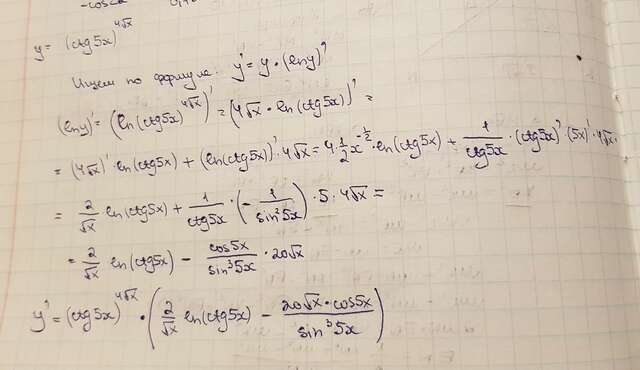 y = (ctg5x)^{4√x}
Ищем по формуле: y' = y · (lny)'
(lny)' = (ln(ctg5x)^{4√x})' = (4√x · ln(ctg5x))' =
= (4√x)' · ln(ctg5x) + (ln(ctg5x))' · 4√x = 4 · 1/2 x^{-1/2} · ln(ctg5x) + 1/ctg5x · (ctg5x)' · (5x)' · 4√x =
= 2/√x ln(ctg5x) + 1/ctg5x · (- 1/sin²5x) · 5 · 4√x =
= 2/√x ln(ctg5x) - cos5x/sin³5x · 20√x
y' = (ctg5x)^{4√x} · (2/√x ln(ctg5x) - 20√x · cos5x/sin³5x)